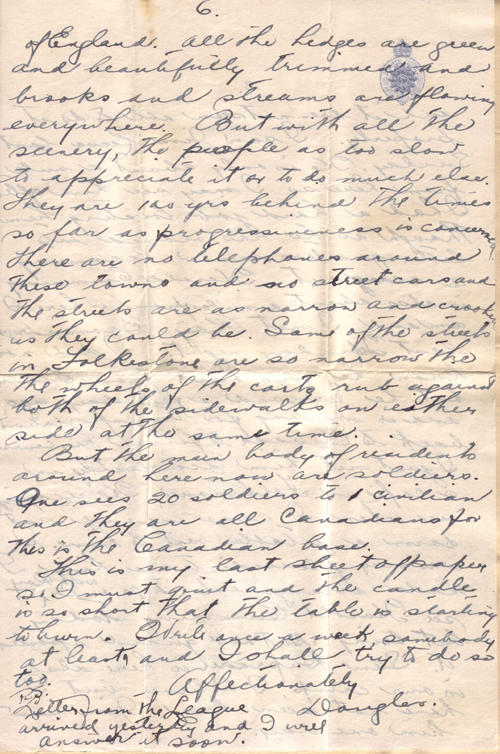 6.
of England. All the hedges are green
and beautifully trimmed and
brooks and streams are flowing
everywhere. But with all the
scenery, the people as too slow
to appreciate it or to do much else.
They are 100 yrs behind the times
so far as progressiveness is concerned.
There are no telephones around
these towns and no street cars and
the streets are as narrow and crooked
as they could be. Some of the streets
in Folkestone are so narrow the
the wheels of the carts rub against
both of the sidewalks on either
side at the same time.
But the main body of residents
around here now are soldiers.
One sees 20 soldiers to 1 civilian
and they are all Canadians for
this is the Canadian base.
This is my last sheet of paper
so I must quit and the candle
is so short that the table is starting
to burn. I write once a week somebody
at least, and I shall try to do so
too.
Affectionately
Douglas.
P.S.
Letter from the League
arrived yesterday and I will
answer it soon.